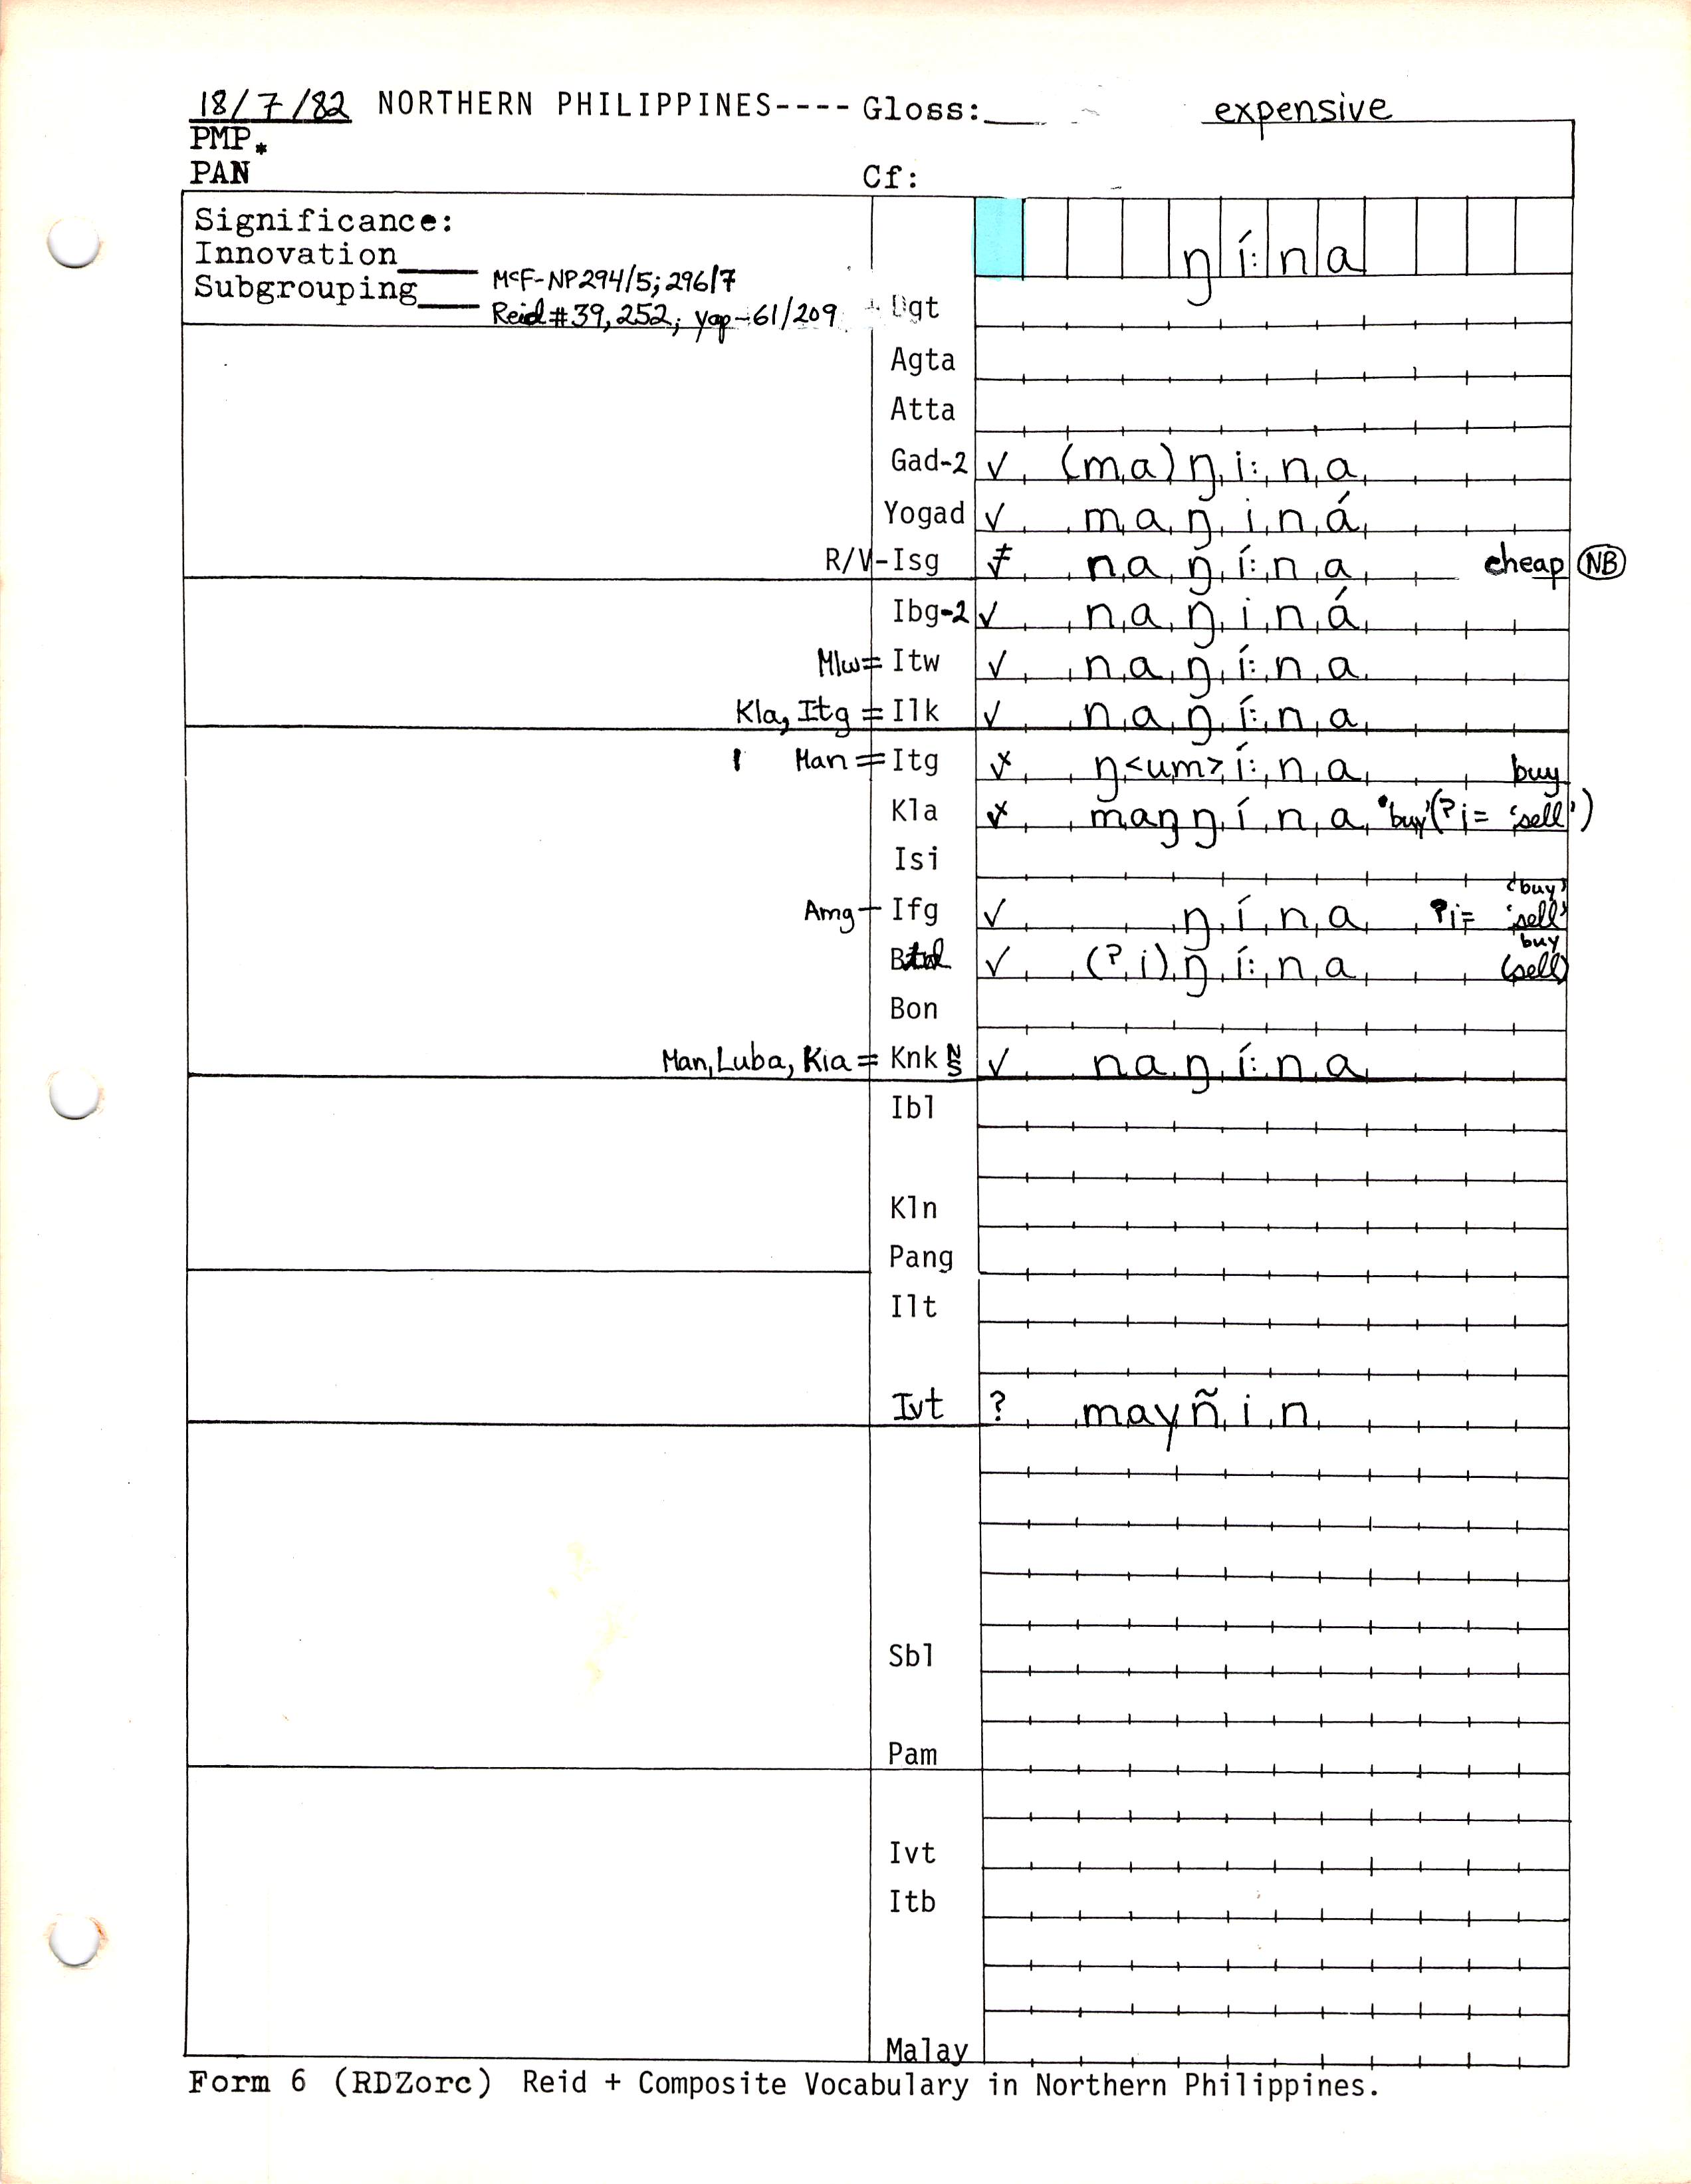 18/7/82 NORTHERN PHILIPPINES---- Gloss:___ expensive
PMP*
PAN Cf:
Significance:
Innovation____
Subgrouping____ McF-NP294/5; 296/7
Reid #39, 252; Yap-61/209
ŋí:na
Dgt
Agta
Atta
Gad-2 √ (ma)ŋi:na
Yogad √ maŋiná
R/V-Isg ≠ naŋí:na cheap (NB)
Ibg-2 √ naŋiná
Mlw= Itw √ naŋí:na
Kla, Itg = Ilk √ naŋí:na
Man = Itg ŋ<um>í:na buy
Kla maŋŋína 'buy' (ʔi= 'sell')
Isi
Amg - Ifg √ ŋína 'buy' ʔi= 'sell'
√ (ʔi)ŋí:na buy (sell)
Bon
Man, Luba, Kia = Knk N S √ naŋí:na
Ibl
Kln
Pang
Ilt
Ivt ? mayñin
Sbl
Pam
Ivt
Itb
Malay
Form 6 (RDZorc) Reid + Composite Vocabulary in Northern Philippines.